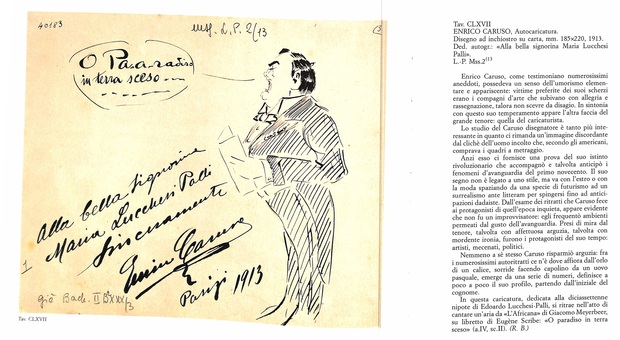 40183
mss. L. P. 2/13
O Pa-a-radiso
in terra sceso ---
Alla bella signorina
Maria Lucchesi Palli
sinceramente
Enrico Caruso
Parigi 1913
1
Tav. CLXVII
Tav. CLXVII
ENRICO CARUSO, Autocaricatura.
Disegno ad inchiostro su carta, mm. 185×220, 1913.
Ded. autogr.: «Alla bella signorina Maria Lucchesi
Palli».
L.-P. Mss.2¹¹³
Enrico Caruso, come testimoniano numerosissimi
aneddoti, possedeva un senso dell'umorismo elemen-
tare e appariscente: vittime preferite dei suoi scherzi
erano i compagni d'arte che subivano con allegria e
rassegnazione, talora non scevre da disagio. In sintonia
con questo suo temperamento appare l'altra faccia del
grande tenore: quella del caricaturista.
Lo studio del Caruso disegnatore è tanto più inte-
ressante in quanto ci rimanda un'immagine discordante
dal clichè dell'uomo incolto che, secondo gli americani,
comprava i quadri a metraggio.
Anzi esso ci fornisce una prova del suo intinto
rivoluzionario che accompagnò e talvolta anticipò i
fenomeni d'avanguardia del primo novecento. Il suo
segno non è legato a uno stile, ma va con l'estro o con
la moda spaziando da una specie di futurismo ad un
surrealismo ante litteram per spingersi fino ad antici-
pazioni dadaiste. Dall'esame dei ritratti che Caruso fece
ai protagonisti di quell'epoca inquieta, appare evidente
che non fu un improvvisatore: egli frequentò ambienti
permeati dal gusto dell'avanguardia. Presi di mira dal
tenore, talvolta con affettuosa arguzia, talvolta con
mordente ironia, furono i protagonisti del suo tempo:
artisti, mecenati, politici.
Nemmeno a sé stesso Caruso risparmiò arguzia: fra
i numerosissimi autoritratti ce n'è dove affiora dall'orlo
di un calice, sorride facendo capolino da un uovo
pasquale, emerge da una serie di numeri, definisce a
poco a poco il suo profilo, partendo dall'iniziale del
cognome.
In questa caricatura, dedicata alla diciassettenne
nipote di Edoardo Lucchesi-Palli, si ritrae nell'atto di
cantare un'aria da «L'Africana» di Giacomo Meyerbeer,
su libretto di Eugène Scribe: «O paradiso in terra
sceso» (a.IV, sc.II). (R. B.)